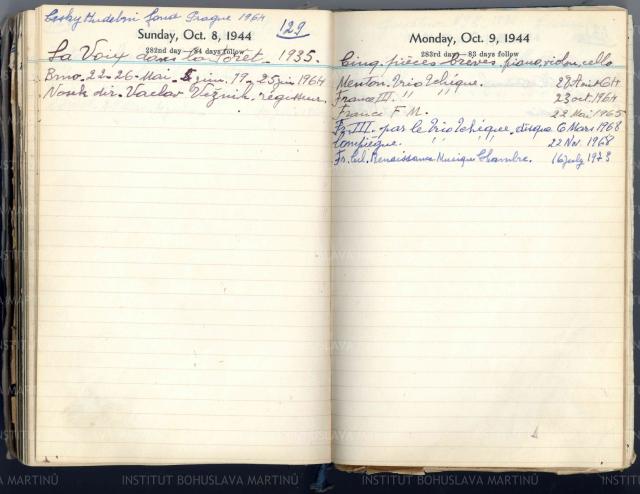 Český Hudební fond Prague 1964
129
Sunday, Oct. 8, 1944
282nd day—84 days follow
La Voix dans la Forêt. 1935.
Brno. 22-26 Mai. 5 juin. 19-25 juin 1964
Nosek dir. Vaclav Věžnik, régisseur.
Monday, Oct. 9, 1944
283rd day—83 days follow
Cinq pièces brèves, piano, violon, cello
Menton. Trio Tchéque. 29 Août 64
France III. " " 23 oct. 1964
France F M. 22 Mai 1965
Fr. III. par le Trio Tchéque, disque 6 Mars 1968
Compiègne. " " 22 Nov. 1968
Fr. Cul. Renaissance Musique Chambre. 16 july 1973
INSTITUT BOHUSLAVA MARTINŮ